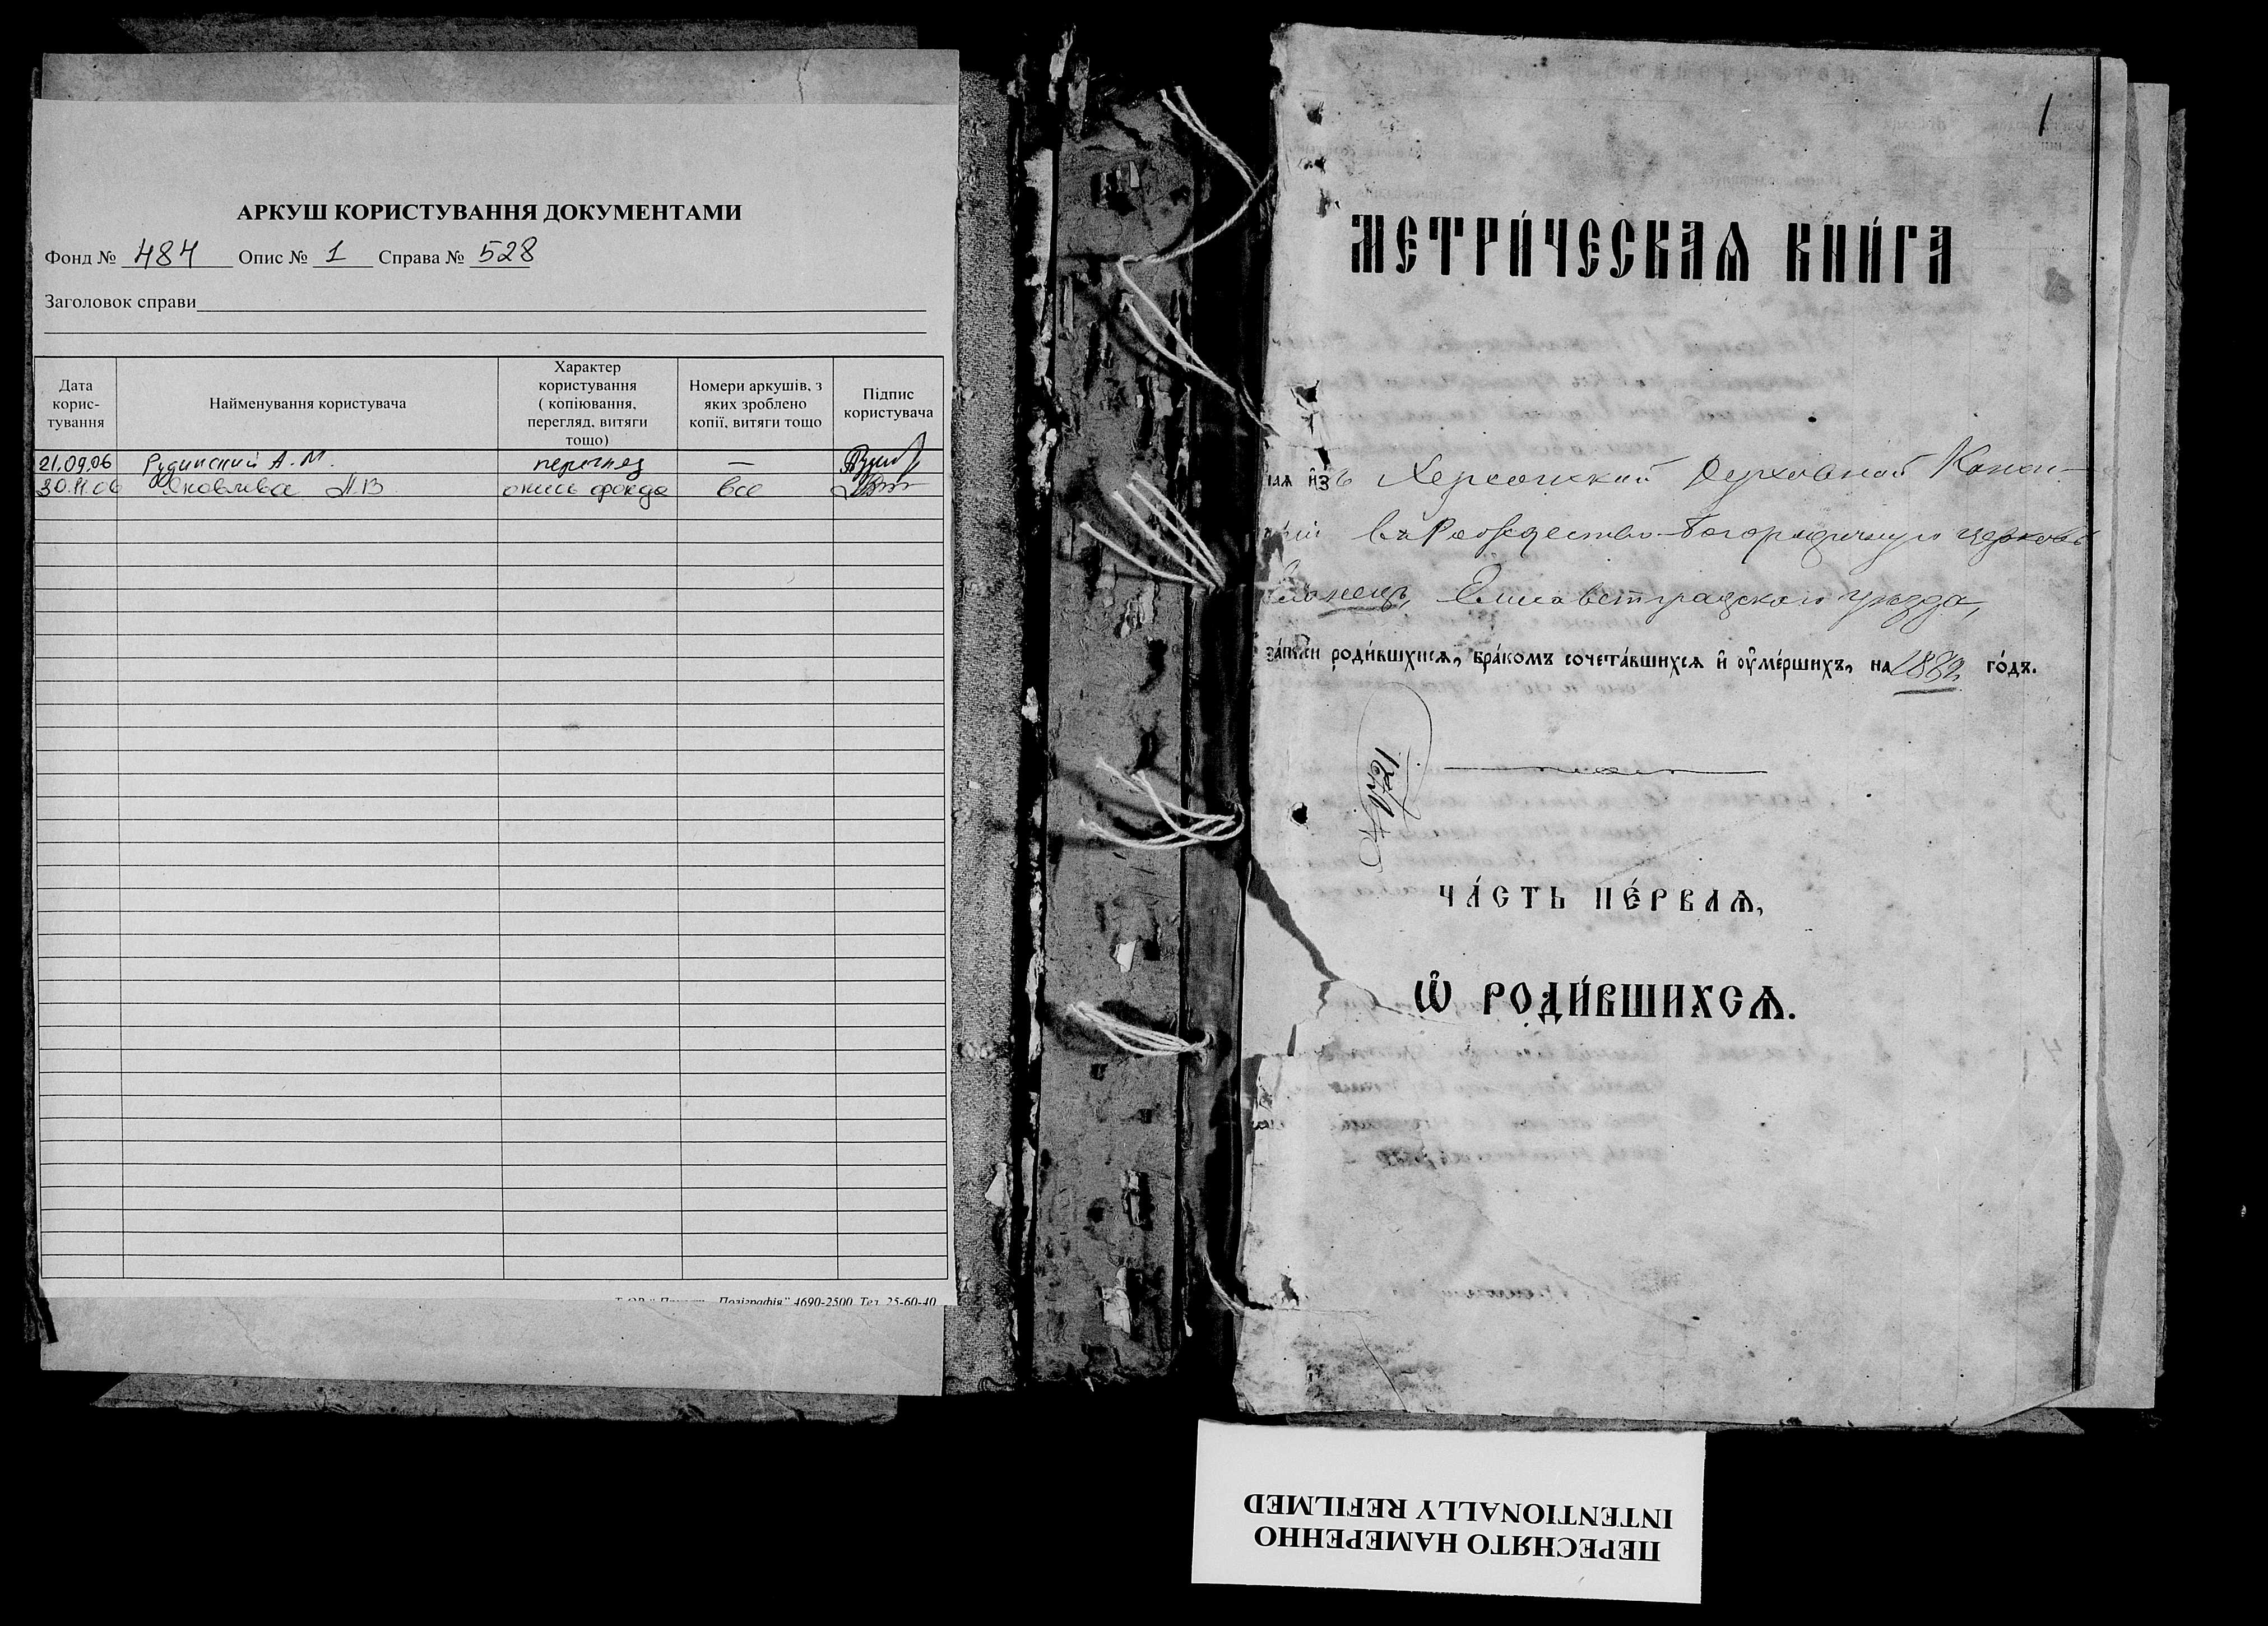 АРКУШ КОРИСТУВАННЯ ДОКУМЕНТАМИ
Фонд № 484 Опис № 1 Справа № 528
Заголовок справи
Дата корис-тування
Найменування користувача
Характер користування ( копіювання, перегляд, витяги тощо)
Номери аркушів, з яких зроблено копії, витяги тощо
Підпис користувача
21.09.06 Рудинский А.М. перегляд —
30.11.06 Яковлева опись фонда все
Поліграфія" 4690-2500. Тел. 25-60-40
1
МЕТРИ́ЧЕСКАѦ КНИ́ГА
из Херсонской Духовной Конси-
въ Рождество-Богородичную церковь
Елисаветградского уѣзда,
роди́вшихсѧ, бра́комъ сочета́вшихсѧ и҆ ᲂу҆ме́ршихъ, на 1882 го́дъ.
1721
ЧА́СТЬ ПЕ́РВАѦ,
Ѡ҆ РОДИ́ВШИХСѦ.
ПЕРЕСНЯТО НАМЕРЕННО
INTENTIONALLY REFILMED